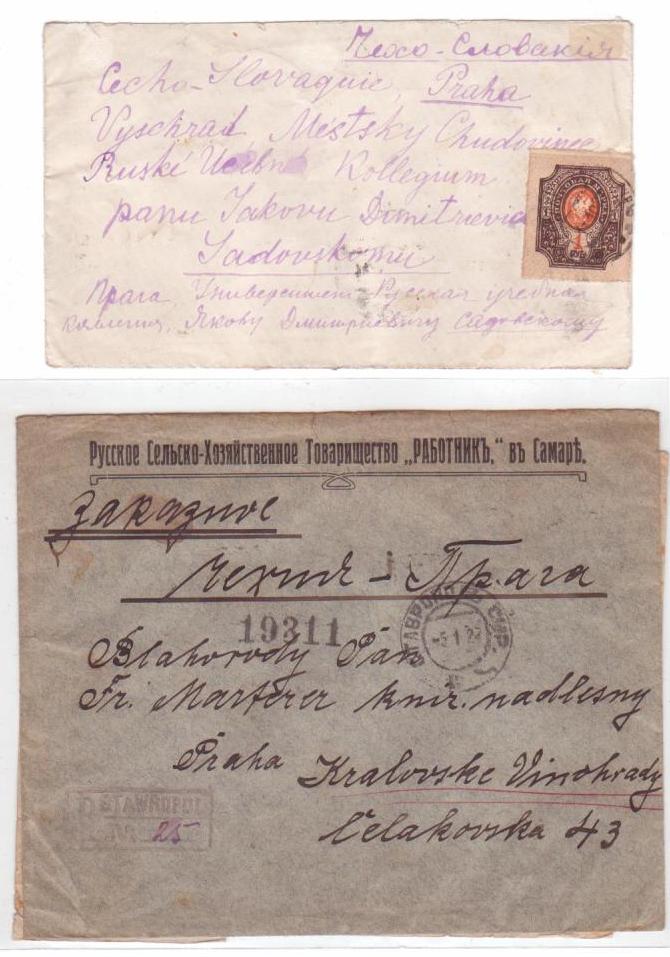 Чехо-Словакія
Cecho-Slovaquie, Praha
Vyschrad Mestsky Chudovinec
Ruské Učebné Kollegium
panu Jakovu Dimitrievič
Sadovskomu
Прага, Университет Русская учебная
коллегия, Якову Дмитриевичу Садовскому
1
РУБ
Русское Сельско-Хозяйственное Товарищество „РАБОТНИКЪ,“ въ Самарѣ.
Заказное
Чехия - Прага
19311
Blahorody Pan
Fr. Marterer kníž. nadlesny
Praha Kralovske Vinohrady
Celakovska 43
STAWROPOL
25